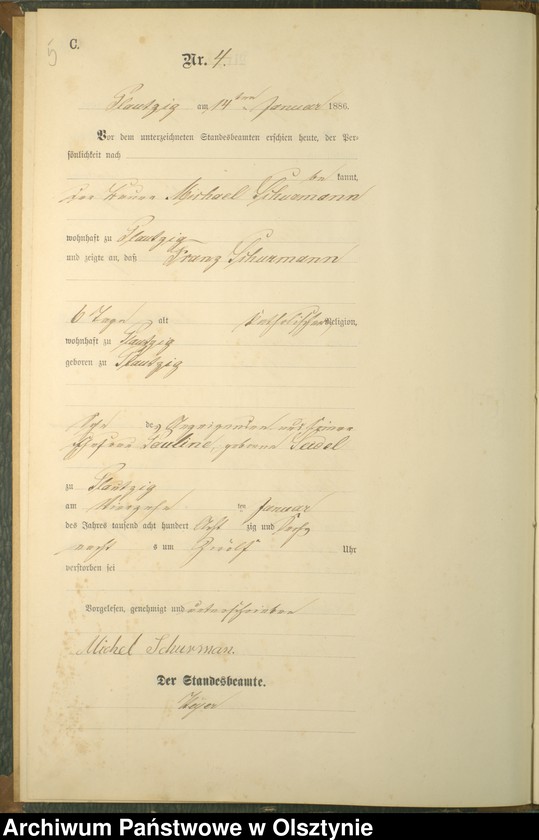 5
C.
Nr. 4.
Plautzig am 14ten Januar 1886.
Vor dem unterzeichneten Standesbeamten erschien heute, der Per-
sönlichkeit nach
be kannt,
Michael Schurmann
wohnhaft zu Plautzig
und zeigte an, daß Franz Schurmann
6 Tage alt katholischer Religion,
wohnhaft zu Plautzig
geboren zu Plautzig
des Anzeigenden und seiner
Ehefrau Pauline, geborene Seidel
zu Plautzig
am ten Januar
des Jahres tausend acht hundert Acht zig und Sechs
s um Zwölf Uhr
verstorben sei
Vorgelesen, genehmigt und unterschrieben
Michel Schurman.
Der Standesbeamte.
Archiwum Państwowe w Olsztynie